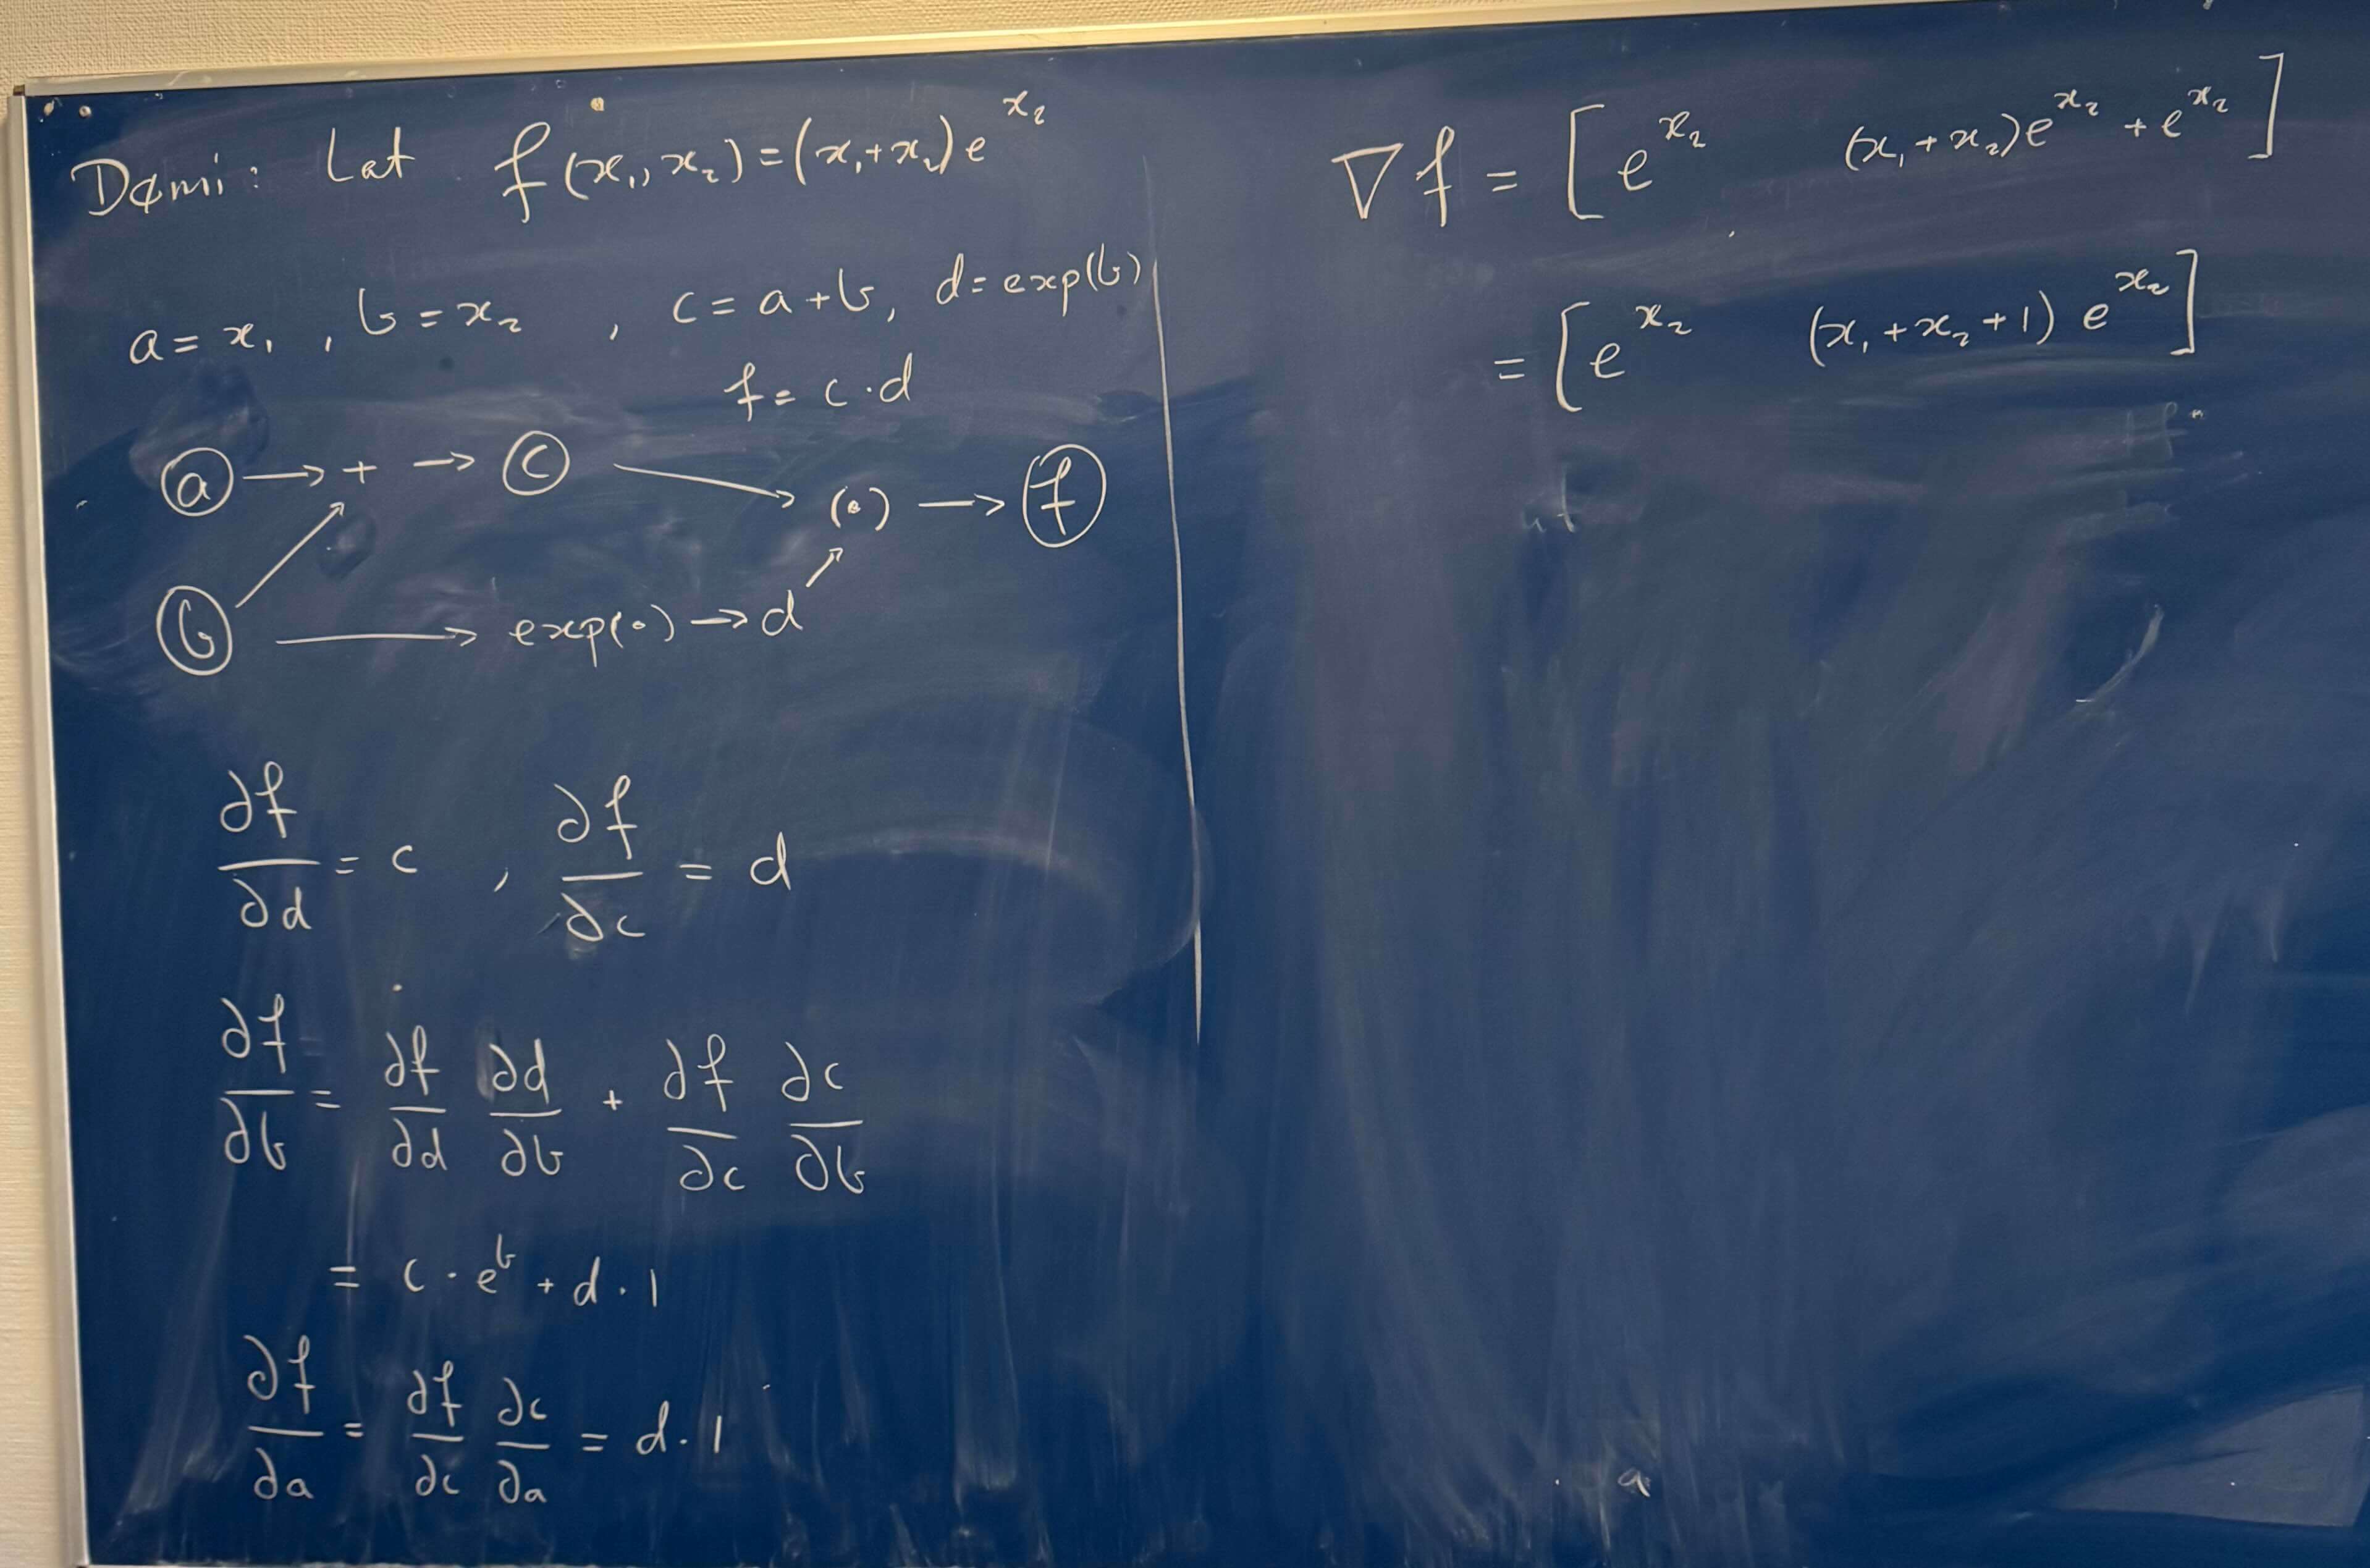 Dæmi: Lat f(x₁, x₂) = (x₁ + x₂) e^{x₂}
a = x₁ , b = x₂ , c = a + b, d = exp(b)
f = c · d
a → + → c → (·) → f
b → exp(·) → d
∂f/∂d = c , ∂f/∂c = d
∂f/∂b = ∂f/∂d ∂d/∂b + ∂f/∂c ∂c/∂b
= c · e^b + d · 1
∂f/∂a = ∂f/∂c ∂c/∂a = d · 1
∇f = [ e^{x₂} (x₁ + x₂) e^{x₂} + e^{x₂} ]
= [ e^{x₂} (x₁ + x₂ + 1) e^{x₂} ]
a